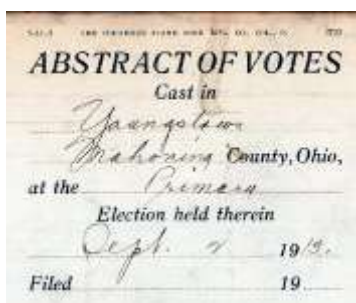 ABSTRACT OF VOTES
Cast in
Youngstown
Mahoning County, Ohio,
at the Primary
Election held therein
Sept. 2 1913.
Filed 19